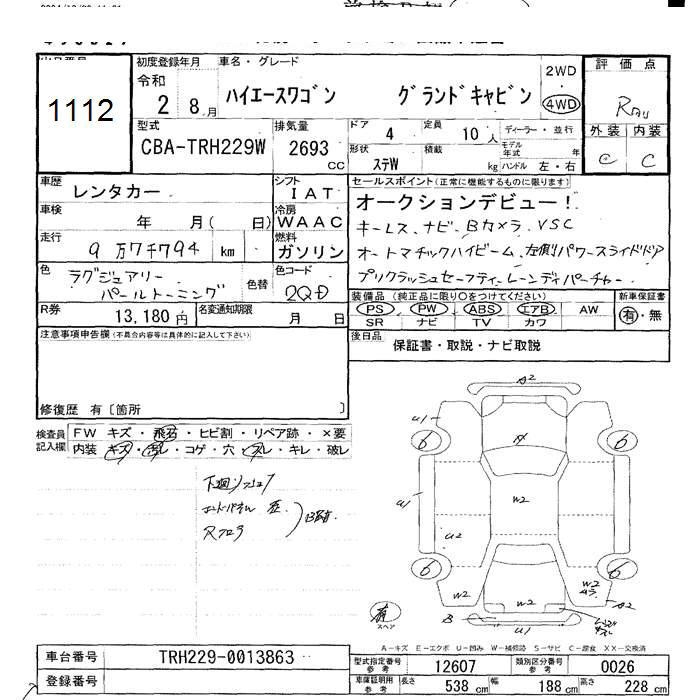 初度登録年月
車名・グレード
2WD
評価点
1112
令和
2 8月
ハイエースワゴン グランドキャビン
4WD
型式
CBA-TRH229W
排気量
2693 CC
ドア 4
定員 10人
ディーラー・並行
外装 内装
形状 ステW
積載 kg
モデル年式 年
ハンドル 左・右
C C
車歴 レンタカー
シフト IAT
セールスポイント(正常に機能するものに限ります)
オークションデビュー!
車検 年 月( 日)
冷房 WAAC
キーレス、ナビ、Bカメラ、VSC
走行 9万7千794 km
燃料 ガソリン
オートマチックハイビーム、左側パワースライドドア
色 ラグジュアリー
パールトーニング
色替
色コード
プリクラッシュセーフティ、レーンディパーチャー
装備品(純正品に限り○をつけてください)
新車保証書
R券 13,180円
名変通知期限 月 日
PS PW ABS エアB AW
SR ナビ TV カワ
有・無
注意事項申告欄(不具合内容等は具体的に記入して下さい)
後日品 保証書・取説・ナビ取説
修復歴 有〔箇所 〕
検査員記入欄
FW キズ・飛石・ヒビ割・リペア跡・×要
内装 キズ・汚レ・コゲ・穴・スレ・キレ・破レ
A2
u1
A
6
6
u1
W2
u2
6
6
W2
W2
A2
W2
W2
B
u1
スペア
A-キズ E-エクボ U-凹み W-補修跡 S-サビ C-腐食 XX-交換済
車台番号 TRH229-0013863
型式指定番号 参考 12607
類別区分番号 参考 0026
登録番号
車庫証明用 参考 長さ 538 cm 幅 188 cm 高さ 228 cm